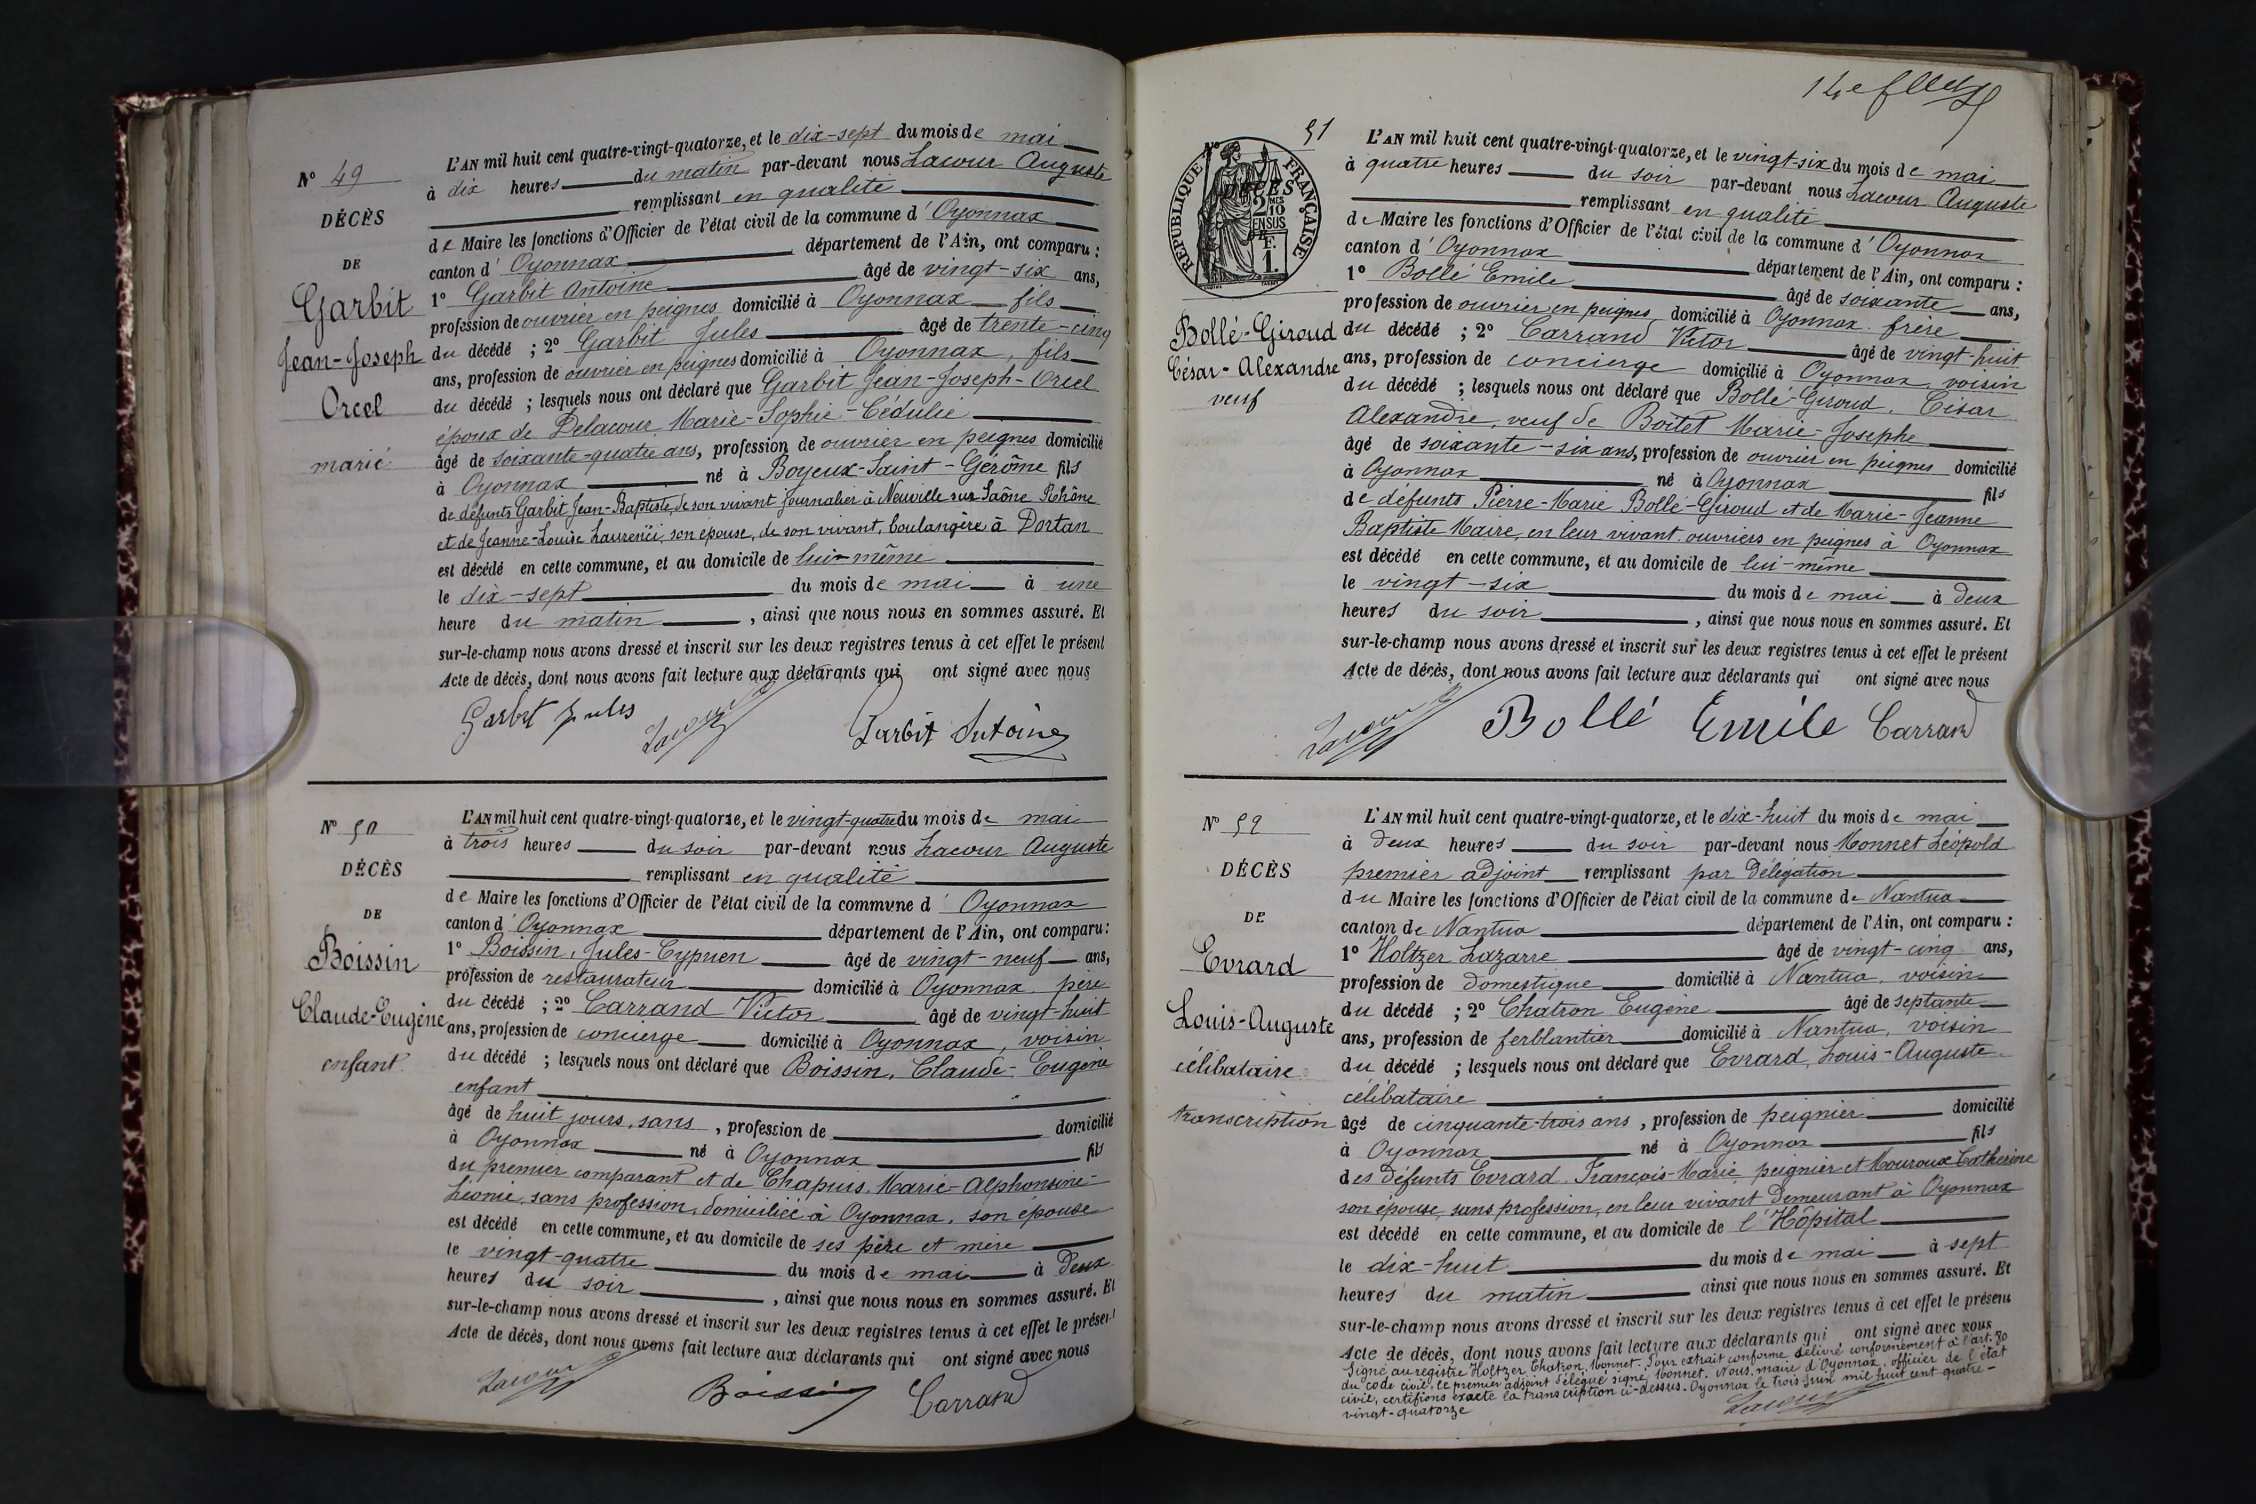 L'AN mil huit cent quatre-vingt-quatorze, et le dix-sept du mois de mai
N° 49
à dix heures du matin par-devant nous Lacour Auguste
remplissant en qualité
DÉCÈS
de Maire les fonctions d'Officier de l'état civil de la commune d'Oyonnax
DE
canton d'Oyonnax département de l'Ain, ont comparu :
Garbit
1° Garbit Antoine âgé de vingt-six ans,
profession de ouvrier en peignes domicilié à Oyonnax fils
Jean-Joseph
du décédé ; 2° Garbit Jules âgé de trente-cinq
ans, profession de ouvrier en peignes domicilié à Oyonnax, fils
Orcel
du décédé ; lesquels nous ont déclaré que Garbit Jean-Joseph-Orcel
époux de Delacour Marie-Sophie-Cédulie
marié
âgé de soixante-quatre ans, profession de ouvrier en peignes domicilié
à Oyonnax né à Boyeux-Saint-Gérôme fils
de défunts Garbit Jean-Baptiste, de son vivant journalier à Neuville sur Saône Rhône
et de Jeanne-Louise Laurençi, son épouse, de son vivant, boulangère à Dortan
est décédé en cette commune, et au domicile de lui-même
le dix-sept du mois de mai à une
heure du matin, ainsi que nous nous en sommes assuré. Et
sur-le-champ nous avons dressé et inscrit sur les deux registres tenus à cet effet le présent
Acte de décès, dont nous avons fait lecture aux déclarants qui ont signé avec nous
Garbit Jules Lacour Garbit Antoine
L'AN mil huit cent quatre-vingt-quatorze, et le vingt-quatre du mois de mai
N° 50
à trois heures du soir par-devant nous Lacour Auguste
DÉCÈS
remplissant en qualité
de Maire les fonctions d'Officier de l'état civil de la commune d'Oyonnax
DE
canton d'Oyonnax département de l'Ain, ont comparu :
Boissin
1° Boissin, Jules-Cyprien âgé de vingt-neuf ans,
profession de restaurateur domicilié à Oyonnax père
Claude-Eugène
du décédé ; 2° Carrand Victor âgé de vingt-huit
ans, profession de concierge domicilié à Oyonnax, voisin
enfant
du décédé ; lesquels nous ont déclaré que Boissin, Claude-Eugène
enfant
âgé de huit jours, sans, profession de domicilié
à Oyonnax né à Oyonnax fils
du premier comparant et de Chapuis Marie-Alphonsine-
Léonie, sans profession, domiciliée à Oyonnax, son épouse
est décédé en cette commune, et au domicile de ses père et mère
le vingt-quatre du mois de mai à deux
heures du soir, ainsi que nous nous en sommes assuré. Et
sur-le-champ nous avons dressé et inscrit sur les deux registres tenus à cet effet le présent
Acte de décès, dont nous avons fait lecture aux déclarants qui ont signé avec nous
Lacour Boissin Carrand
14e
51
N°
RÉPUBLIQUE FRANÇAISE
DÉCÈS
2 MES
10
EN SUS
F.
1.
L'AN mil huit cent quatre-vingt-quatorze, et le vingt-six du mois de mai
à quatre heures du soir par-devant nous Lacour Auguste
remplissant en qualité
de Maire les fonctions d'Officier de l'état civil de la commune d'Oyonnax
canton d'Oyonnax département de l'Ain, ont comparu :
1° Bollé Emile âgé de soixante ans,
profession de ouvrier en peignes domicilié à Oyonnax frère
Bollé-Giroud
du décédé ; 2° Carrand Victor âgé de vingt-huit
César-Alexandre
ans, profession de concierge domicilié à Oyonnax, voisin
veuf
du décédé ; lesquels nous ont déclaré que Bollé-Giroud, César
Alexandre, veuf de Boitet Marie-Josephe
âgé de soixante-six ans, profession de ouvrier en peignes domicilié
à Oyonnax né à Oyonnax fils
de défunts Pierre-Marie Bollé-Giroud et de Marie-Jeanne
Baptiste Maire, en leur vivant, ouvriers en peignes à Oyonnax
est décédé en cette commune, et au domicile de lui-même
le vingt-six du mois de mai à deux
heures du soir, ainsi que nous nous en sommes assuré. Et
sur-le-champ nous avons dressé et inscrit sur les deux registres tenus à cet effet le présent
Acte de décès, dont nous avons fait lecture aux déclarants qui ont signé avec nous
Lacour Bollé Emile Carrand
L'AN mil huit cent quatre-vingt-quatorze, et le dix-huit du mois de mai
N° 52
à deux heures du soir par-devant nous Monnet Léopold
DÉCÈS
premier adjoint remplissant par délégation
du Maire les fonctions d'Officier de l'état civil de la commune de Nantua
DE
canton de Nantua département de l'Ain, ont comparu :
Evrard
1° Holtzer Lazarre âgé de vingt-cinq ans,
profession de domestique domicilié à Nantua, voisin
Louis-Auguste
du décédé ; 2° Chatron Eugène âgé de septante
ans, profession de ferblantier domicilié à Nantua, voisin
célibataire
du décédé ; lesquels nous ont déclaré que Evrard, Louis-Auguste
célibataire
transcription
âgé de cinquante-trois ans, profession de peignier domicilié
à Oyonnax né à Oyonnax fils
des défunts Evrard François-Marie, peignier et Mouroux Catherine
son épouse, sans profession, en leur vivant demeurant à Oyonnax
est décédé en cette commune, et au domicile de l'Hôpital
le dix-huit du mois de mai à sept
heures du matin ainsi que nous nous en sommes assuré. Et
sur-le-champ nous avons dressé et inscrit sur les deux registres tenus à cet effet le présent
Acte de décès, dont nous avons fait lecture aux déclarants qui ont signé avec nous
Signé au registre Holtzer Chatron, Monnet. Pour extrait conforme délivré conformément à l'art. 80
du code civil, le premier adjoint délégué signé Monnet. Nous, maire d'Oyonnax, officier de l'état
civil, certifions exacte la transcription ci-dessus. Oyonnax le trois juin mil huit cent quatre-
vingt-quatorze
Lacour